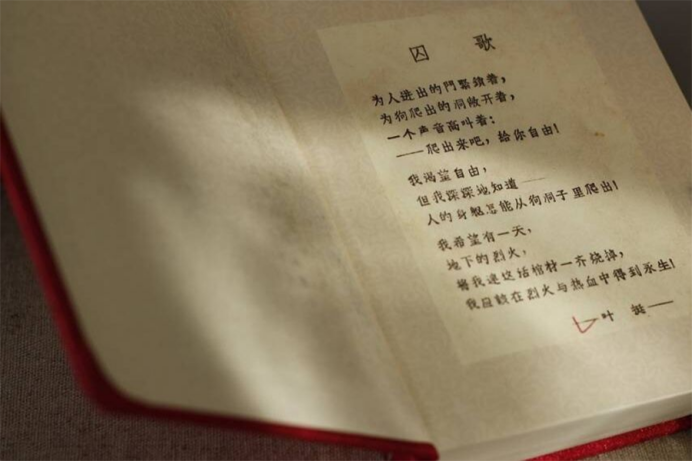 囚 歌
为人进出的门紧鎖着，
为狗爬出的洞敞开着，
一个声音高叫着：
——爬出来吧，给你自由！
我渴望自由，
但我深深地知道——
人的身躯怎能从狗洞子里爬出！
我希望有一天，
地下的烈火，
将我连这活棺材一齐烧掉，
我应该在烈火与热血中得到永生！
叶 挺——